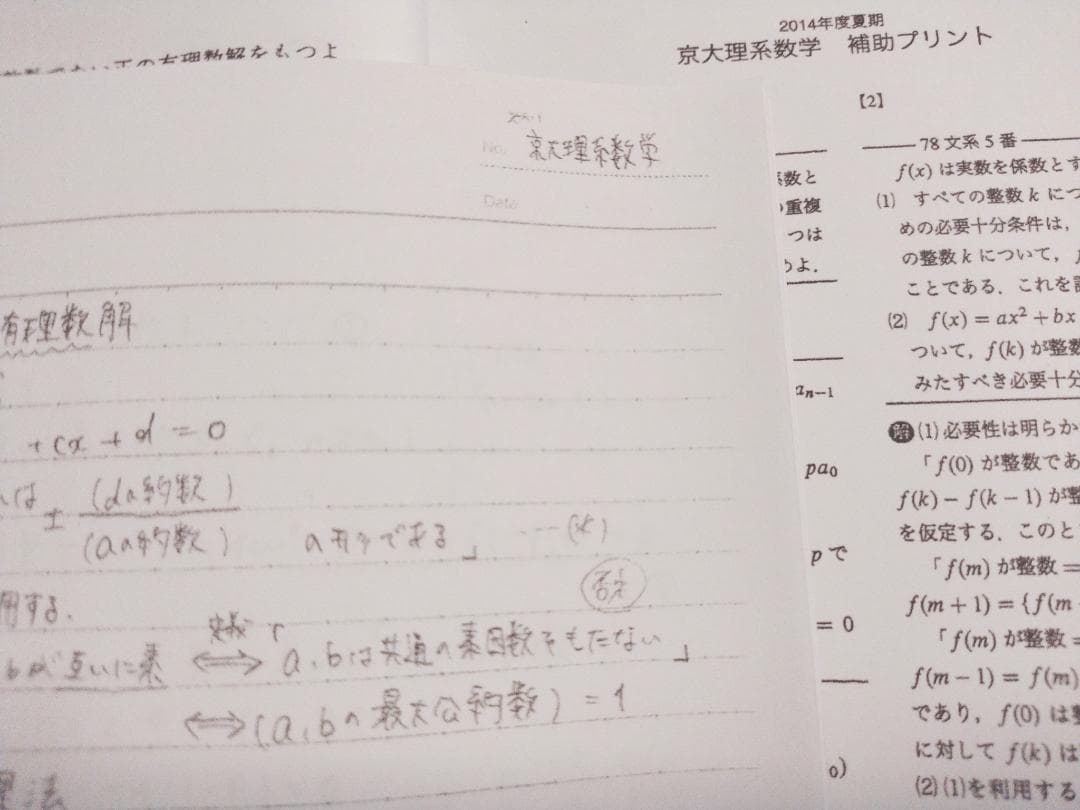 2014年度夏期
京大理系数学 補助プリント
数でない正の有理数解をもつよ
No. 京大理系数学
Date
有理数解
+cx+d=0
は ± (dの約数)
(aの約数) の形である」 …(*)
用する.
否定
bが互いに素 ⟺ 定義 「a,bは共通の素因数をもたない」
⟺ (a,bの最大公約数)=1
理法
係数と
の重複
つは
めよ.
an−1
pa0
pで
= 0
0)
【2】
78 文系 5 番
f(x) は実数を係数とす
(1) すべての整数 k につ
めの必要十分条件は,
の整数 k について, f
ことである. これを証
(2) f(x) = ax² + bx
ついて, f(k) が整数
みたすべき必要十分
解 (1) 必要性は明らか
「f(0) が整数であ
f(k) − f(k − 1) が整
を仮定する. このと
「f(m) が整数 =
f(m + 1) = {f(m
「f(m) が整数 =
f(m − 1) = f(m)
であり, f(0) は整
に対して f(k) は
(2) (1)を利用する